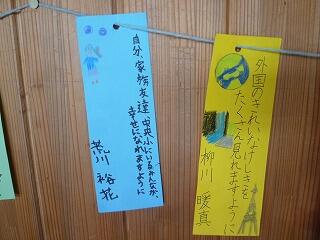 自分、家族、友達、中央小にいるみんなが、
幸せになれますように
荒川 裕花
外国のきれいなけしきを
たくさん見れますように
柳川 暖真